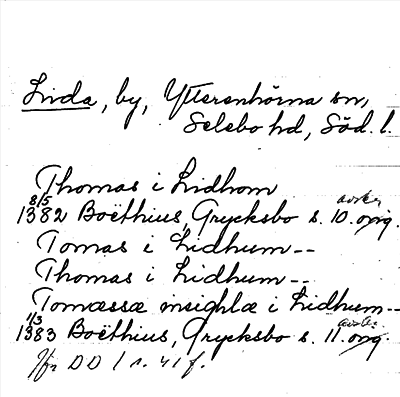 Linda, by, Ytterenhörna sn,
Selebo hd, Söd. l.
Thomas i Lidhom
8/5 avskr.
1382 Boëthius, Grycksbo s. 10. orig.
Tomas i Lidhum --
Thomas i Lidhum --
Tomæssæ insighlæ i Lidhum --
1/3 avskr.
1383 Boëthius, Grycksbo s. 11. orig.
Jfr DD 1 s. 41 f.